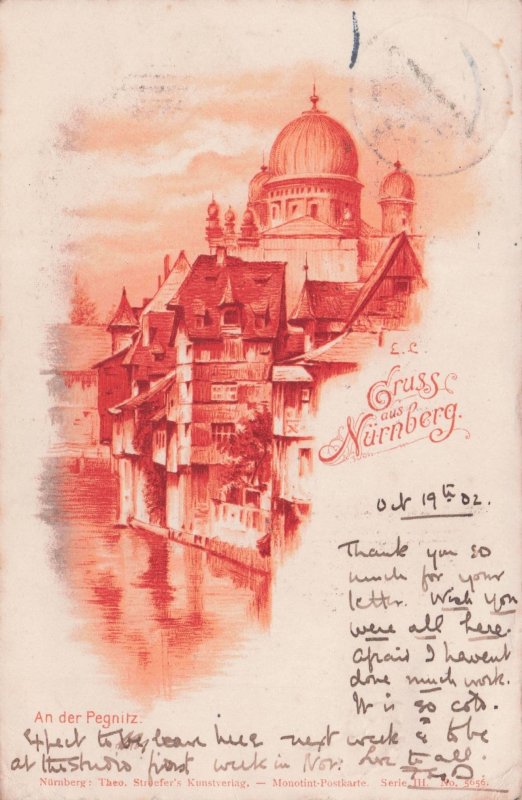 E. L.
Gruss
aus
Nürnberg.
Oct 19th 02.
Thank you so
much for your
letter. Wish you
were all here.
Afraid I havent
done much work.
It is so cold.
An der Pegnitz.
Expect to leave here next week & to be
at the studio first week in Nov. Love to all.
Nürnberg: Theo. Stroefer's Kunstverlag. — Monotint-Postkarte. Serie III. No. 5056.